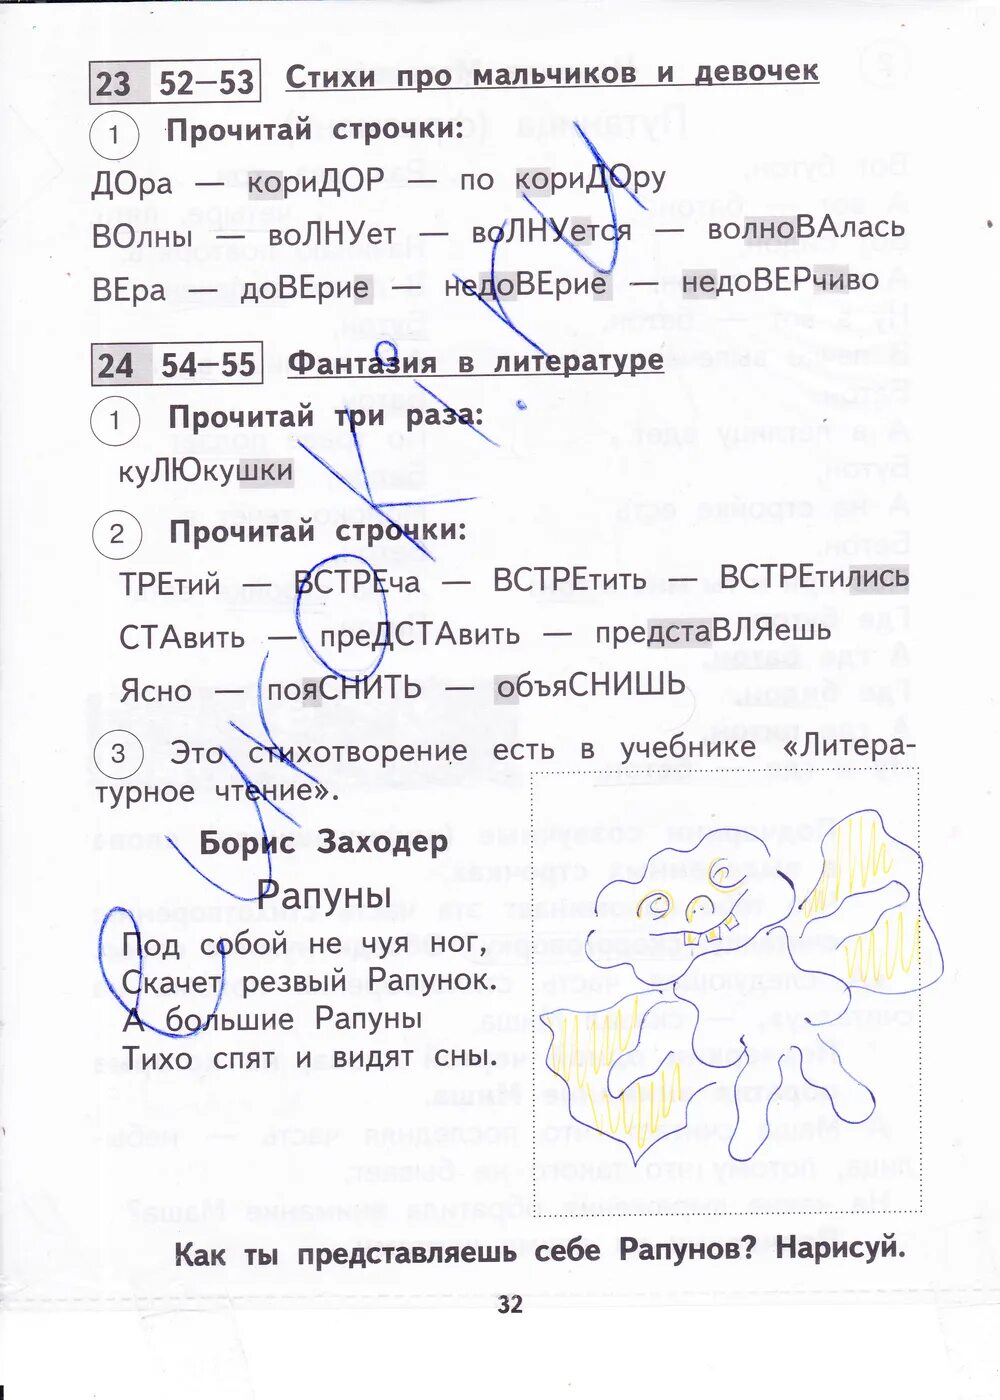 23 52—53 Стихи про мальчиков и девочек
1 Прочитай строчки:
ДОра — кориДОР — по кориДОру
ВОлны — воЛНУет — воЛНУется — волноВАлась
ВЕра — доВЕрие — недоВЕрие — недоВЕРчиво
24 54—55 Фантазия в литературе
1 Прочитай три раза:
куЛЮкушки
2 Прочитай строчки:
ТРЕтий — ВСТРЕча — ВСТРЕтить — ВСТРЕтились
СТАвить — преДСТАвить — представЛЯешь
Ясно — пояСНИТЬ — объяСНИШЬ
3 Это стихотворение есть в учебнике «Литера-
турное чтение».
Борис Заходер
Рапуны
Под собой не чуя ног,
Скачет резвый Рапунок.
А большие Рапуны
Тихо спят и видят сны.
Как ты представляешь себе Рапунов? Нарисуй.
32